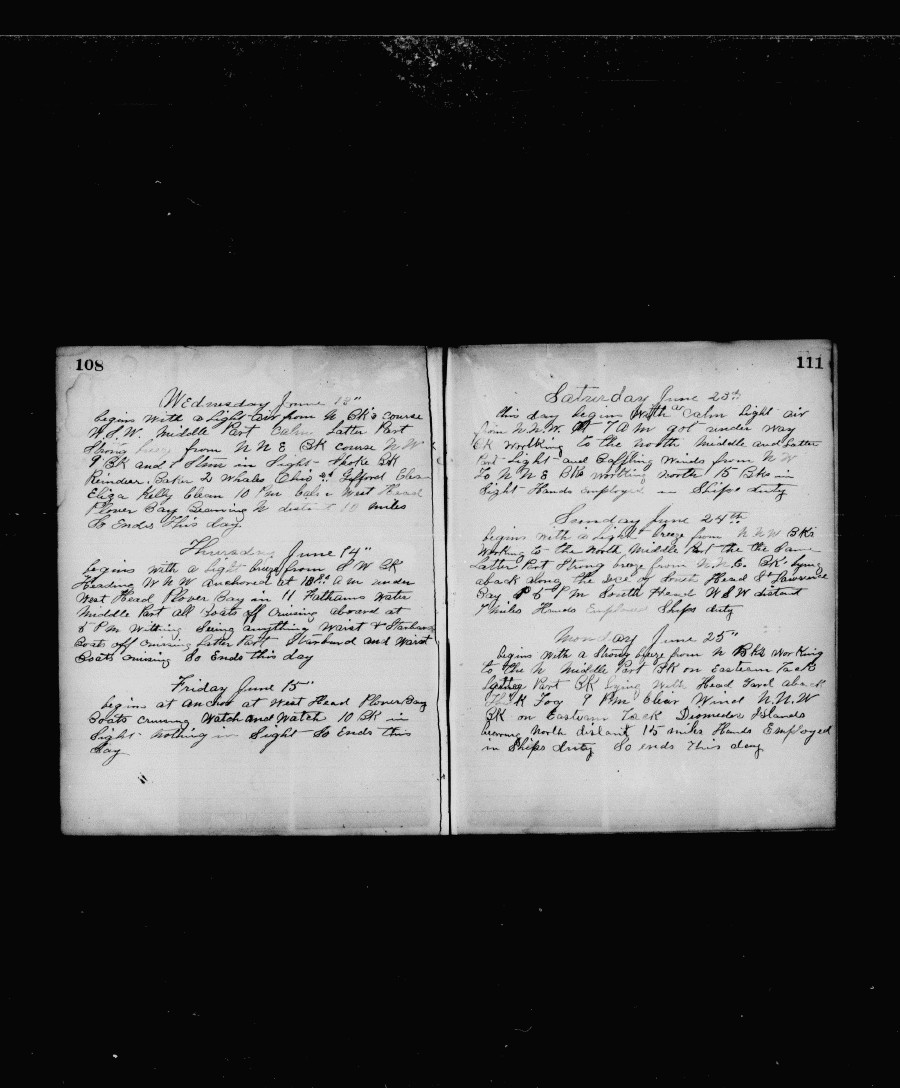 108
Wednesday June 13"
begins with a light air from N Bk's course
W.S.W. Middle Part Calm Latter Part
Strong breeze from N N E BK course N W
9 BK and 1 Stm in Sight Spoke BK
Reindeer. Baker 2 Whales Ohio Gifford Clean
Eliza Kelly Clean 10 P m West Head
Plover Bay Bearing N distant 10 miles
So Ends This day
Thursday June 14"
begins with a light breeze from S W BK
Heading W N W Anchored at A m under
West Head Plover Bay in 11 Fathams Water
Middle Part all boats off Cruising aboard at
5 P m Withing Seeing anything Waist & Starboard
Boats off cruising Latter Part Starburd and Waist
Boats cruising So Ends this day
Friday June 15"
begins at anchor at West Head Plover Bay
Boats cruising Watch and Watch 10 BK in
Sight Nothing in Sight So Ends this
day
111
Saturday June 23rd
this day begins with a Calm Light air
from N.N.W. At 7 A m got under way
BK Working to the north Middle and Latter
Part Light and Baffling Winds from N W
To N N E BKs working north 15 BKs in
Sight Hands employed in Ships duty
Sunday June 24th
begins with a Light breeze from N N W BKs
Working to the North Middle Part the the Same
Latter Part Strong breeze from N.N.E. BK lying
aback along the South Head St Lawrence
Bay 5 P m South Head W S W distant
7 miles Hands Employed Ships duty
Monday June 25"
begins with a Strong breeze from N BKs working
to the N Middle Part BK on Eastearn Tack
Latter Part BK lying With Head Yard aback
Thick Fog 9 P m Clear Wind N.N.W
BK on Eastearn Tack Diomedes Islands
bearing North distant 15 miles Hands Employed
in Ships duty So ends this day